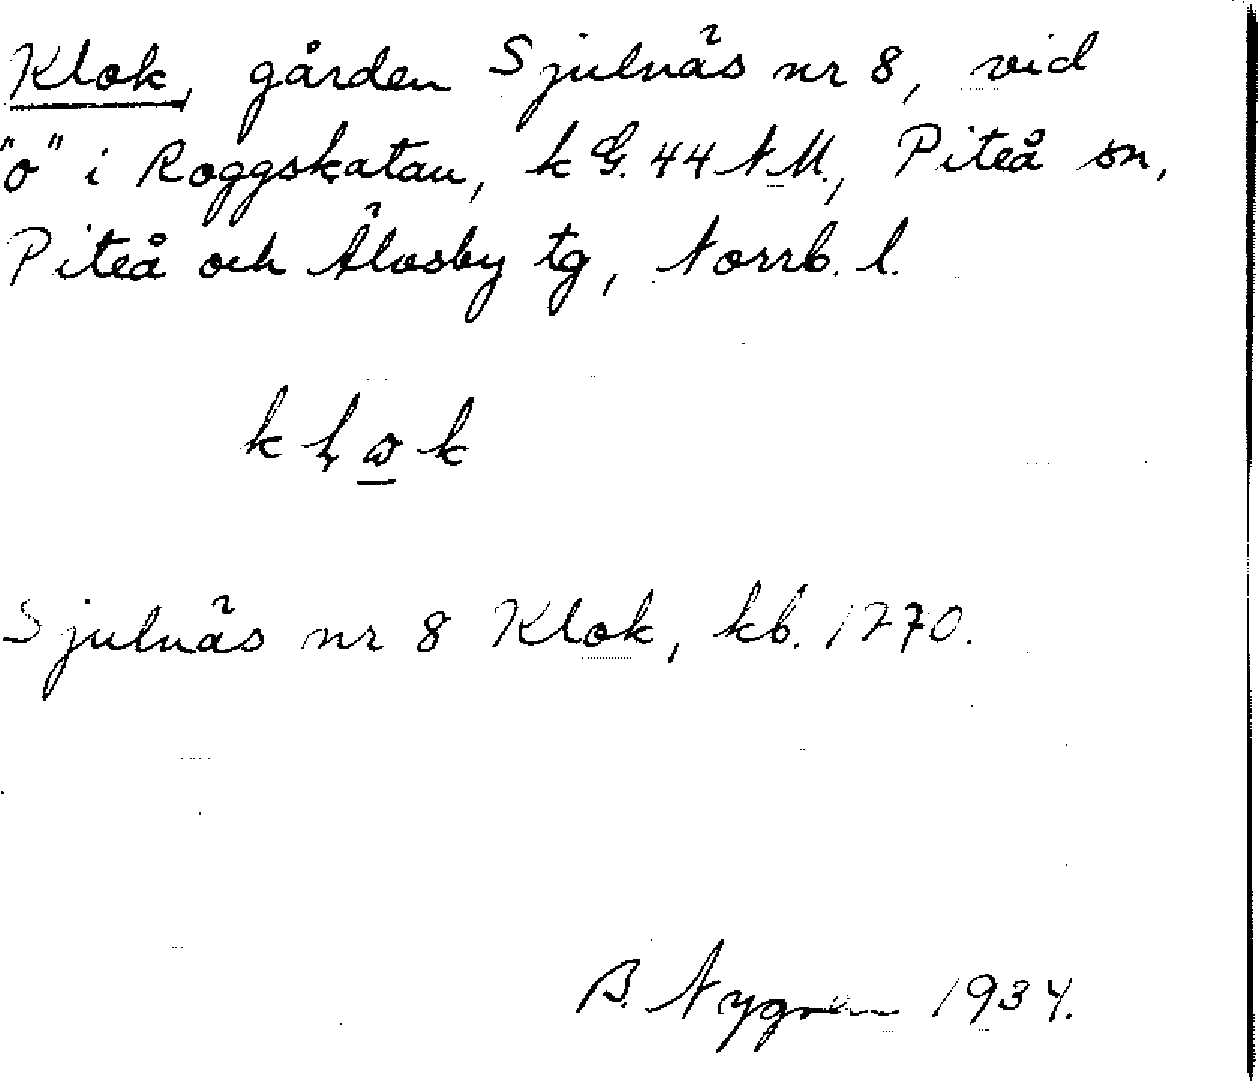 Klok, gården Sjulnäs nr 8, vid
"o" i Roggskatan, k G. 44 N.M., Piteå sn,
Piteå och Älvsby tg, Norrb. l.
Sjulnäs nr 8 Klok, kb. 1770.
B. Nygren 1934.